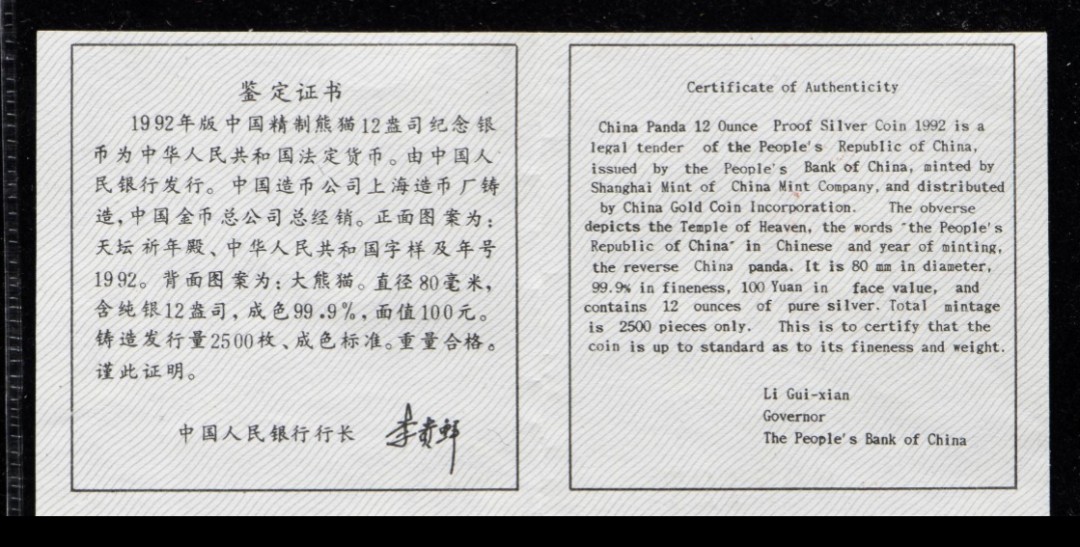 鉴定证书
1992年版中国精制熊猫12盎司纪念银
币为中华人民共和国法定货币。由中国人
民银行发行。中国造币公司上海造币厂铸
造,中国金币总公司总经销。正面图案为:
天坛祈年殿、中华人民共和国字样及年号
1992。背面图案为:大熊猫。直径80毫米,
含纯银12盎司,成色99.9%,面值100元。
铸造发行量2500枚、成色标准。重量合格。
谨此证明。
中国人民银行行长 李贵鲜
Certificate of Authenticity
China Panda 12 Ounce Proof Silver Coin 1992 is a
legal tender of the People's Republic of China,
issued by the People's Bank of China, minted by
Shanghai Mint of China Mint Company, and distributed
by China Gold Coin Incorporation. The obverse
depicts the Temple of Heaven, the words "the People's
Republic of China" in Chinese and year of minting,
the reverse China panda. It is 80 mm in diameter,
99.9% in fineness, 100 Yuan in face value, and
contains 12 ounces of pure silver. Total mintage
is 2500 pieces only. This is to certify that the
coin is up to standard as to its fineness and weight.
Li Gui-xian
Governor
The People's Bank of China